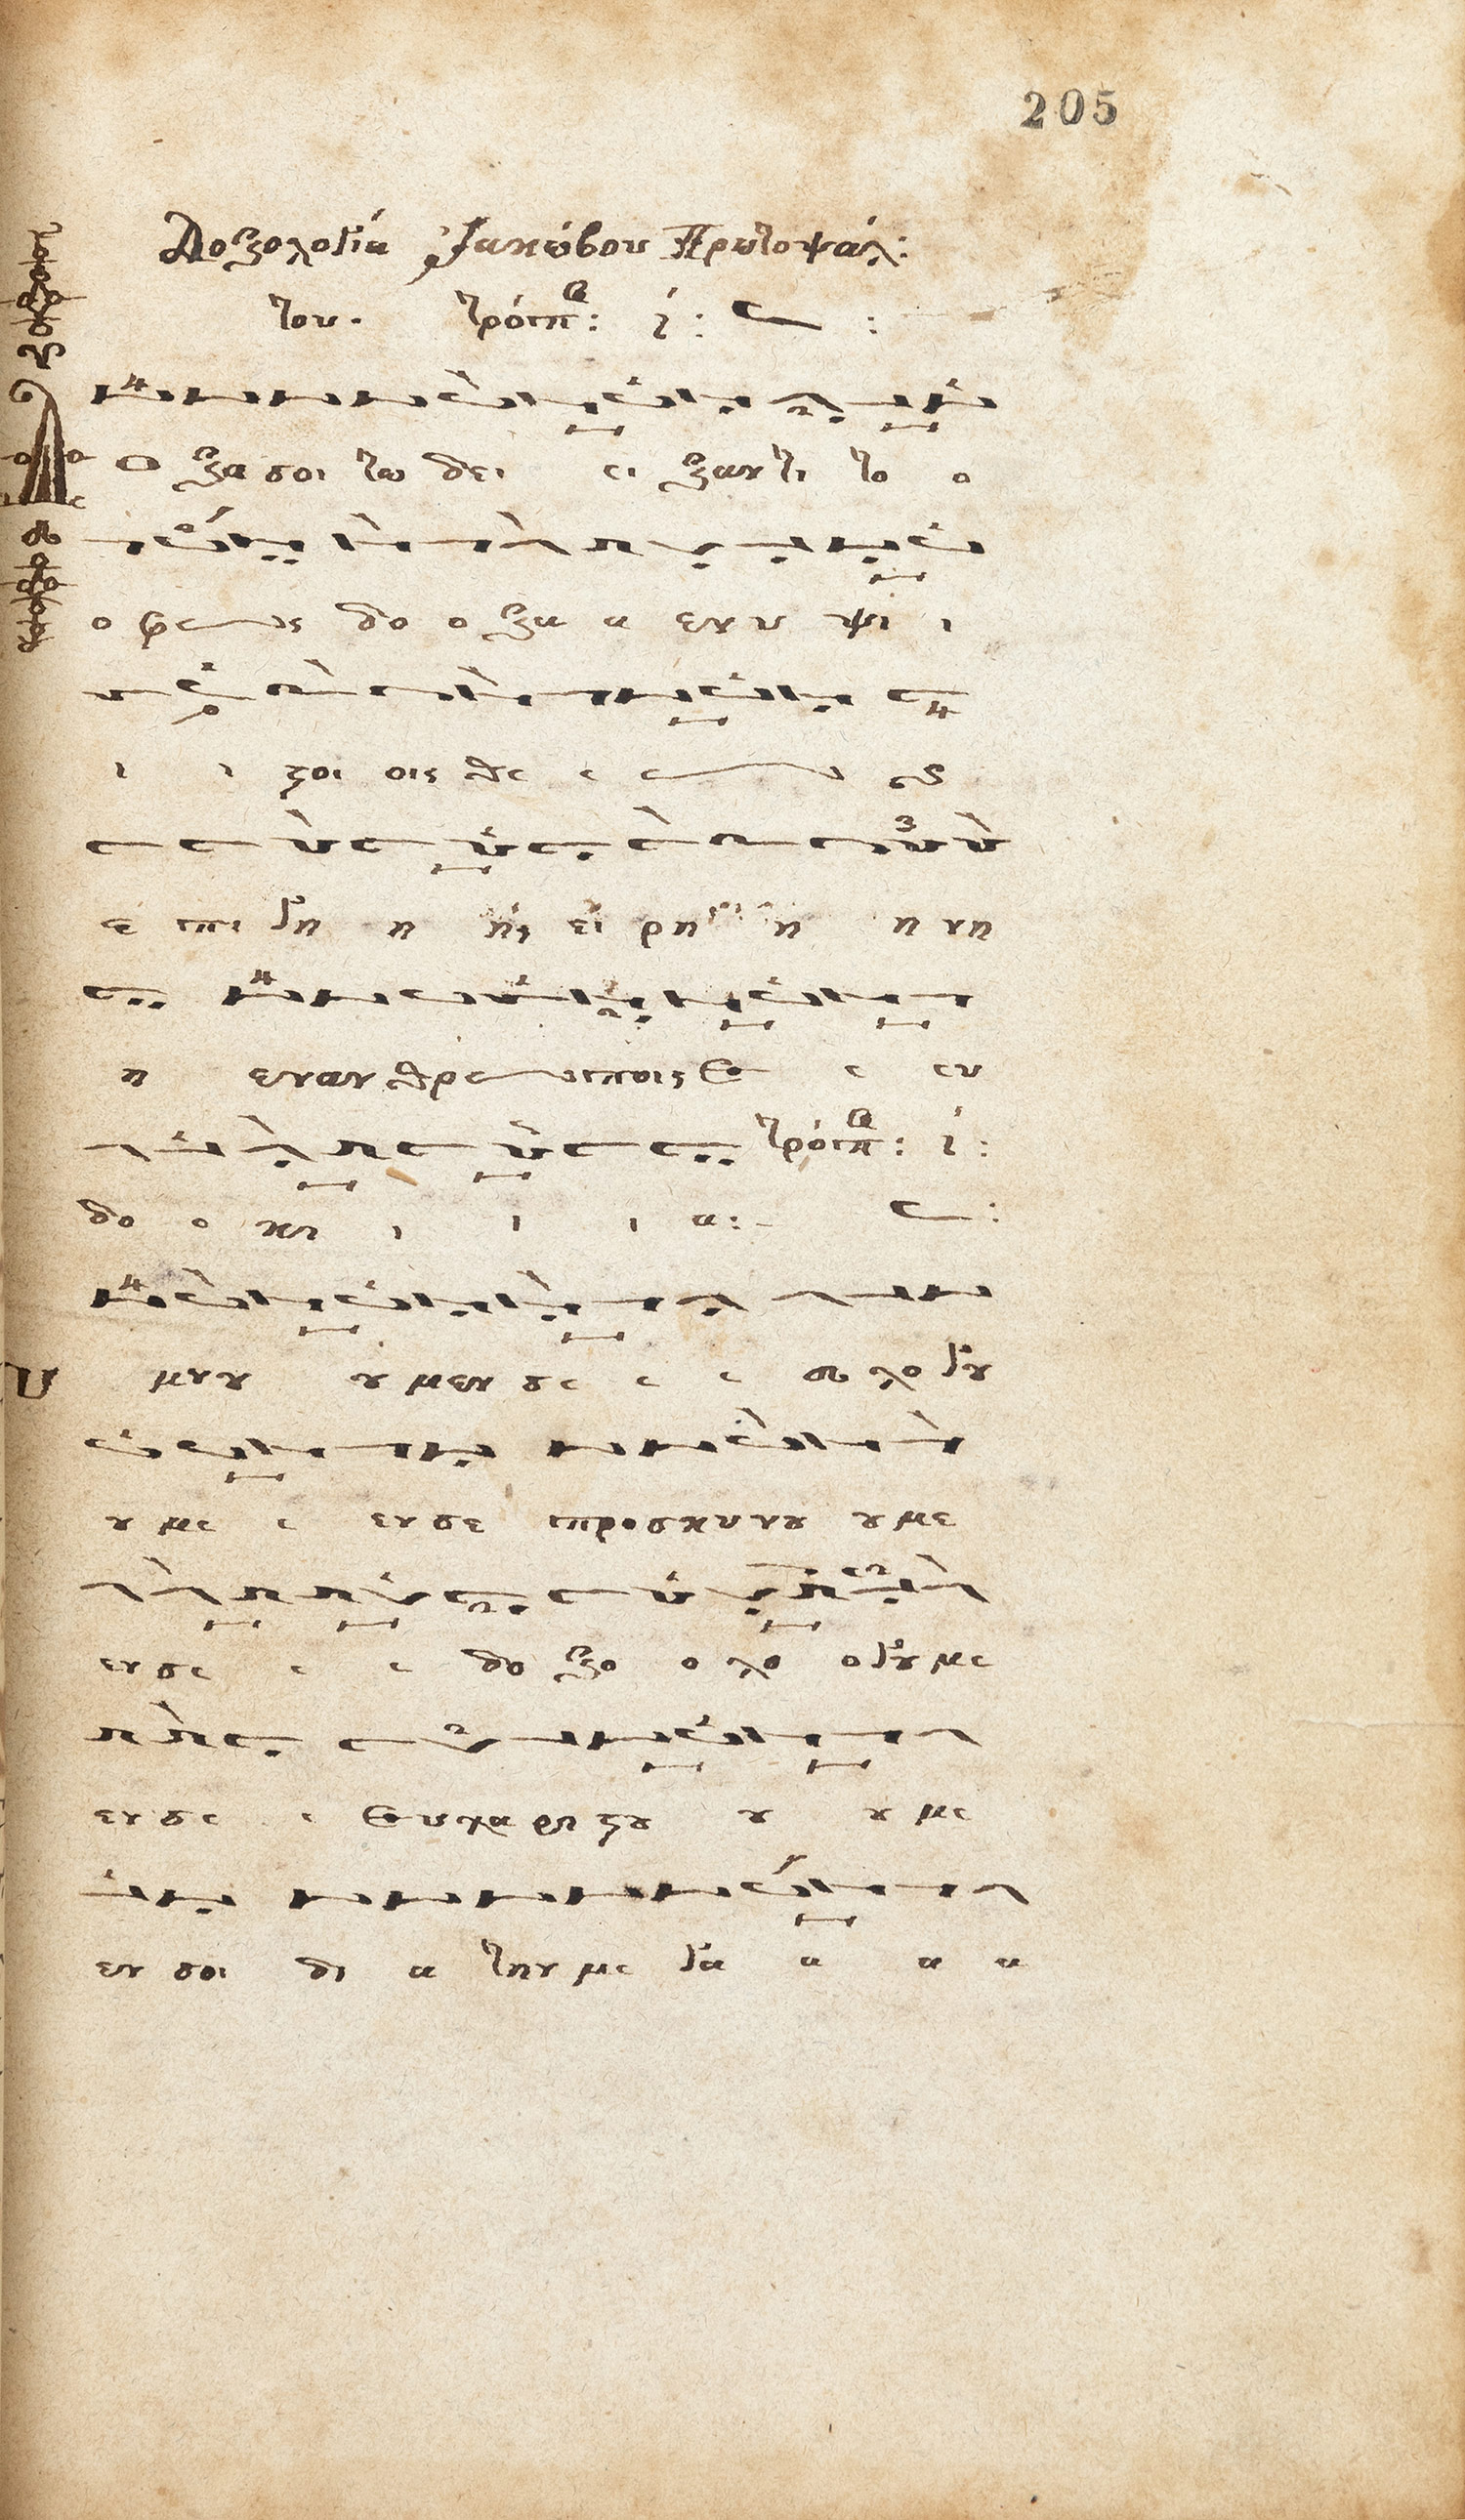 205
Δοξολογία Ἰακώβου Πρωτοψάλ:
του. τρόπ: ι:
Δο ξα σοι τω δει ει ξαν τι το ο
ο φως δο ο ξα α εν υ ψι ι
ι ι ϛοι οις θε ε ε ω
ε πι γη η ής ει ρη η η νη
η εν αν θρωποις ε ε ευ
δο ο κι ι ι ι α: τρόπ: ι:
Υ μνȣ ȣ μεν σε ε ε ευ λο γȣ
ȣ με ε εν σε προσκυνȣ ȣ με
εν σε ε ε δο ξο ο λο ο γȣ με
εν σε ε ευ χα ρι ϛȣ ȣ ȣ με
εν σοι δι α την με γα α α α